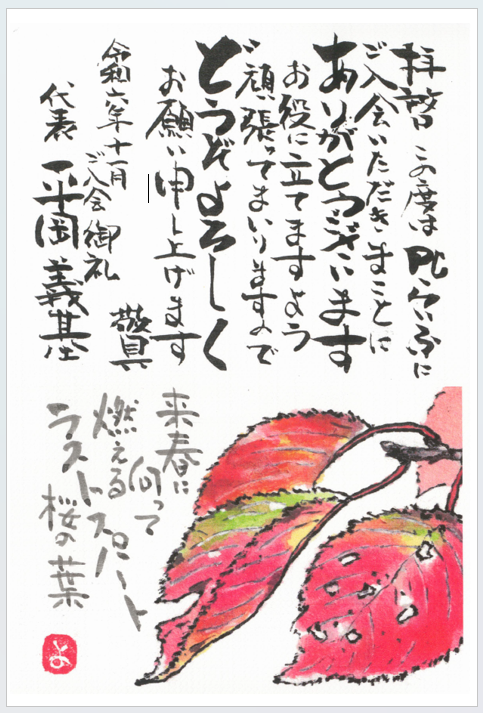 拝啓 この度は PCらいふに
ご入会いただきまことに
ありがとうございます
お役に立てますよう
頑張ってまいりますので
どうぞよろしく
お願い申し上げます
敬具
令和六年十一月
ご入会御礼
代表 平岡義基
来春に
向って
燃える
ラストスパート
桜の葉
よ